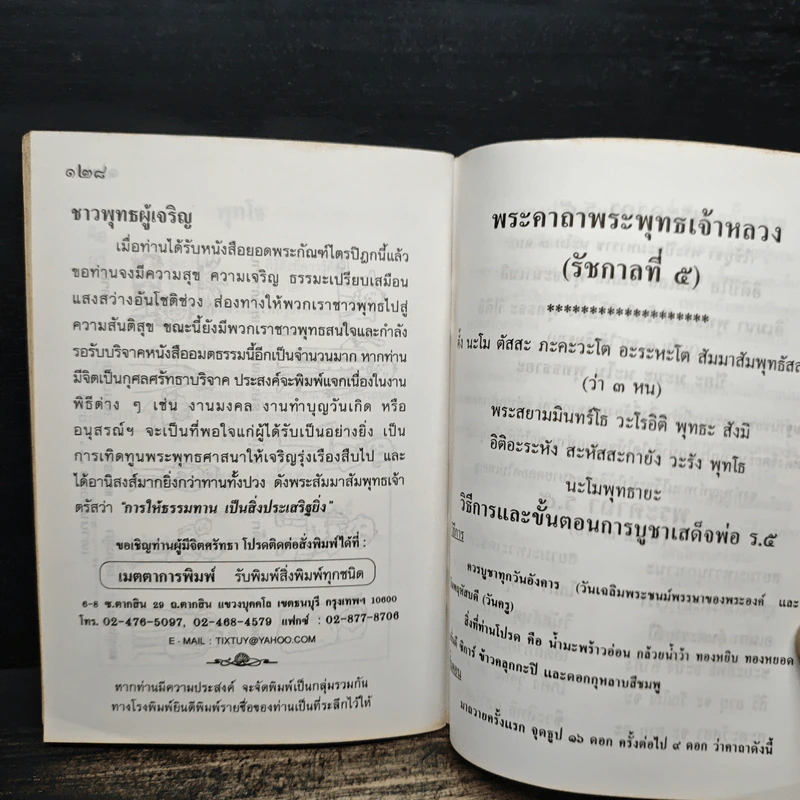 ๑๒๘
ชาวพุทธผู้เจริญ
เมื่อท่านได้รับหนังสือยอดพระกัณฑ์ไตรปิฎกนี้แล้ว
ขอท่านจงมีความสุข ความเจริญ ธรรมะเปรียบเสมือน
แสงสว่างอันโชติช่วง ส่องทางให้พวกเราชาวพุทธไปสู่
ความสันติสุข ขณะนี้ยังมีพวกเราชาวพุทธสนใจและกำลัง
รอรับบริจาคหนังสืออมตธรรมนี้อีกเป็นจำนวนมาก หากท่าน
มีจิตเป็นกุศลศรัทธาบริจาค ประสงค์จะพิมพ์แจกเนื่องในงาน
พิธีต่าง ๆ เช่น งานมงคล งานทำบุญวันเกิด หรือ
อนุสรณ์ฯ จะเป็นที่พอใจแก่ผู้ได้รับเป็นอย่างยิ่ง เป็น
การเทิดทูนพระพุทธศาสนาให้เจริญรุ่งเรืองสืบไป และ
ได้อานิสงส์มากยิ่งกว่าทานทั้งปวง ดังพระสัมมาสัมพุทธเจ้า
ตรัสว่า "การให้ธรรมทาน เป็นสิ่งประเสริฐยิ่ง"
ขอเชิญท่านผู้มีจิตศรัทธา โปรดติดต่อสั่งพิมพ์ได้ที่ :
เมตตาการพิมพ์ รับพิมพ์สิ่งพิมพ์ทุกชนิด
6-8 ซ.ตากสิน 29 ถ.ตากสิน แขวงบุคคโล เขตธนบุรี กรุงเทพฯ 10600
โทร. 02-476-5097, 02-468-4579 แฟกซ์ : 02-877-8706
E - MAIL : TIXTUY@YAHOO.COM
หากท่านมีความประสงค์ จะจัดพิมพ์เป็นกลุ่มรวมกัน
ทางโรงพิมพ์ยินดีพิมพ์รายชื่อของท่านเป็นที่ระลึกไว้ให้
พระคาถาพระพุทธเจ้าหลวง
(รัชกาลที่ ๕)
*******************
นะโม ตัสสะ ภะคะวะโต อะระหะโต สัมมาสัมพุทธัสส
(ว่า ๓ หน)
พระสยามมินทร์โธ วะโรอิติ พุทธะ สังมิ
อิติอะระหัง สะหัสสะกายัง วะรัง พุทโธ
นะโมพุทธายะ
วิธีการและขั้นตอนการบูชาเสด็จพ่อ ร.๕
ควรบูชาทุกวันอังคาร (วันเฉลิมพระชนม์พรรษาของพระองค์ และ
(วันครู)
สิ่งที่ท่านโปรด คือ น้ำมะพร้าวอ่อน กล้วยน้ำว้า ทองหยิบ ทองหยอด
ข้าวคลุกกะปิ และดอกกุหลาบสีชมพู
มาถวายครั้งแรก จุดธูป ๑๖ ดอก ครั้งต่อไป ๙ ดอก ว่าคาถาดังนี้